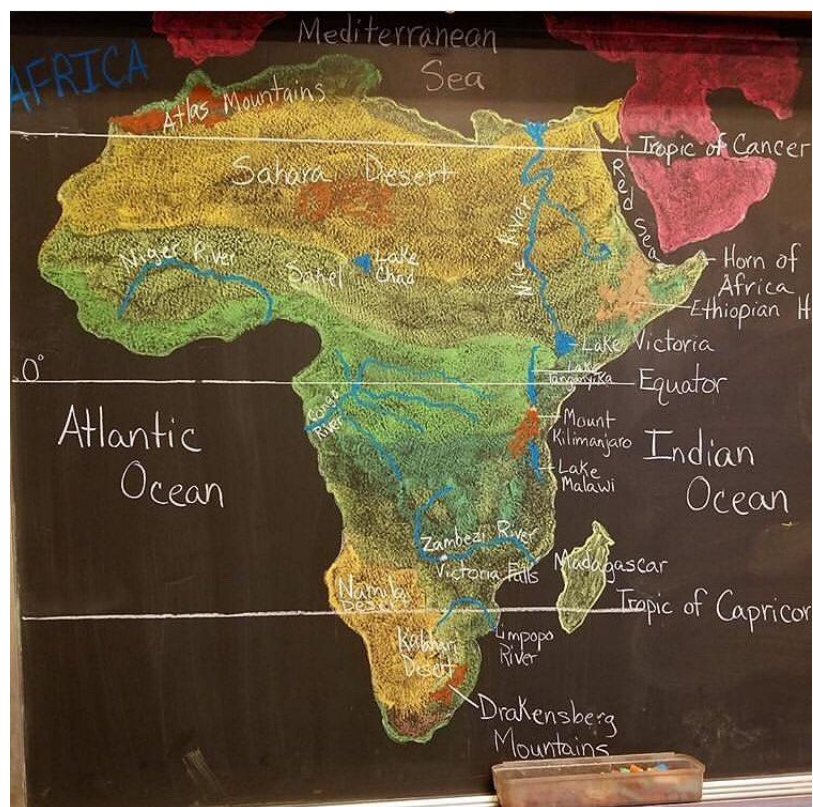 Mediterranean
Sea
AFRICA
Atlas Mountains
Tropic of Cancer
Sahara Desert
Red Sea
Nile River
Niger River
Sahel
Lake
Chad
Horn of
Africa
Ethiopian H
Lake Victoria
Lake
Tanganyika
0°
Equator
Congo
River
Mount
Kilimanjaro
Atlantic
Ocean
Indian
Ocean
Lake
Malawi
Zambezi River
Victoria Falls
Madagascar
Namib
Desert
Tropic of Capricor
Limpopo
River
Desert
Drakensberg
Mountains